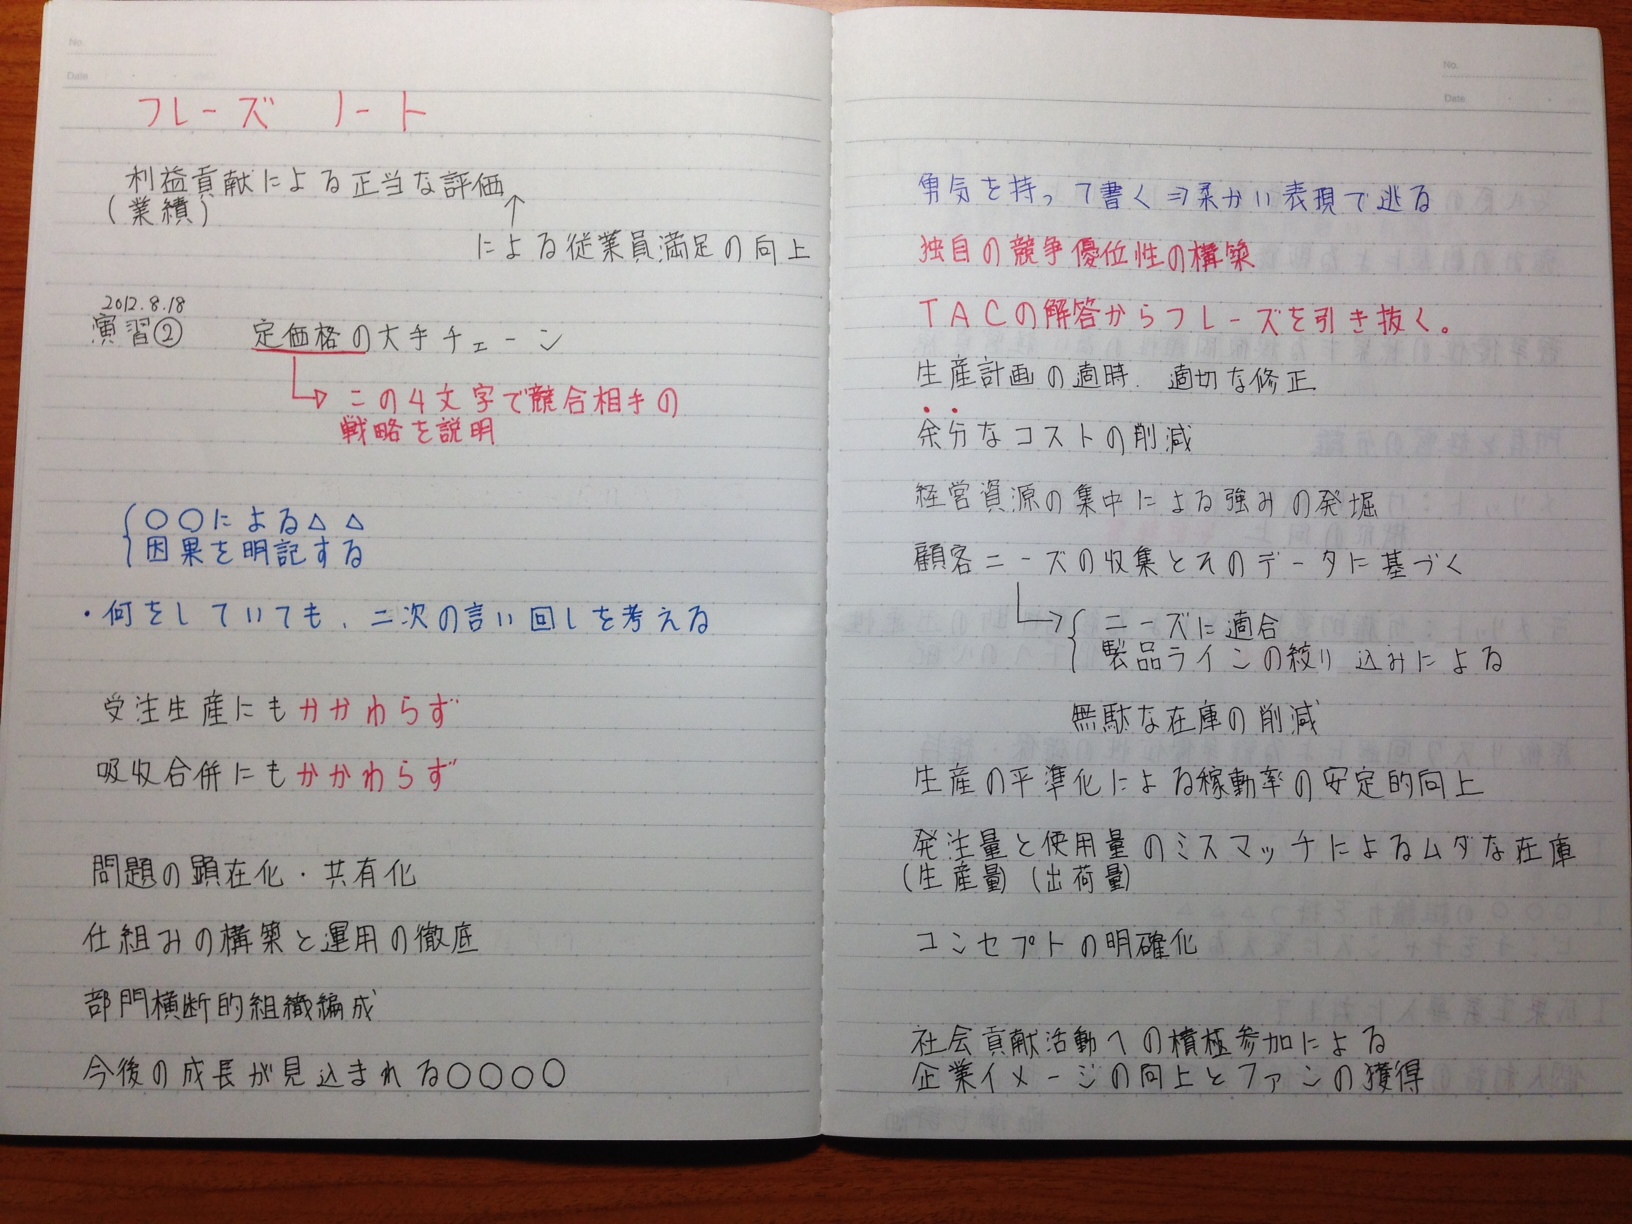 No.
Date
フレーズ ノート
利益貢献による正当な評価
(業績)
↑
による従業員満足の向上
2012.8.18
演習②
定価格の大手チェーン
この4文字で競合相手の
戦略を説明
○○による△△
因果を明記する
・何をしていても、二次の言い回しを考える
受注生産にもかかわらず
吸収合併にもかかわらず
問題の顕在化・共有化
仕組みの構築と運用の徹底
部門横断的組織編成
今後の成長が見込まれる○○○○
No.
Date
勇気を持って書く⇒柔かい表現で逃る
独自の競争優位性の構築
TACの解答からフレーズを引き抜く。
生産計画の適時.適切な修正
余分なコストの削減
経営資源の集中による強みの発掘
顧客ニーズの収集とそのデータに基づく
ニーズに適合
製品ラインの絞り込みによる
無駄な在庫の削減
生産の平準化による稼動率の安定的向上
発注量と使用量のミスマッチによるムダな在庫
(生産量)(出荷量)
コンセプトの明確化
社会貢献活動への積極参加による
企業イメージの向上とファンの獲得